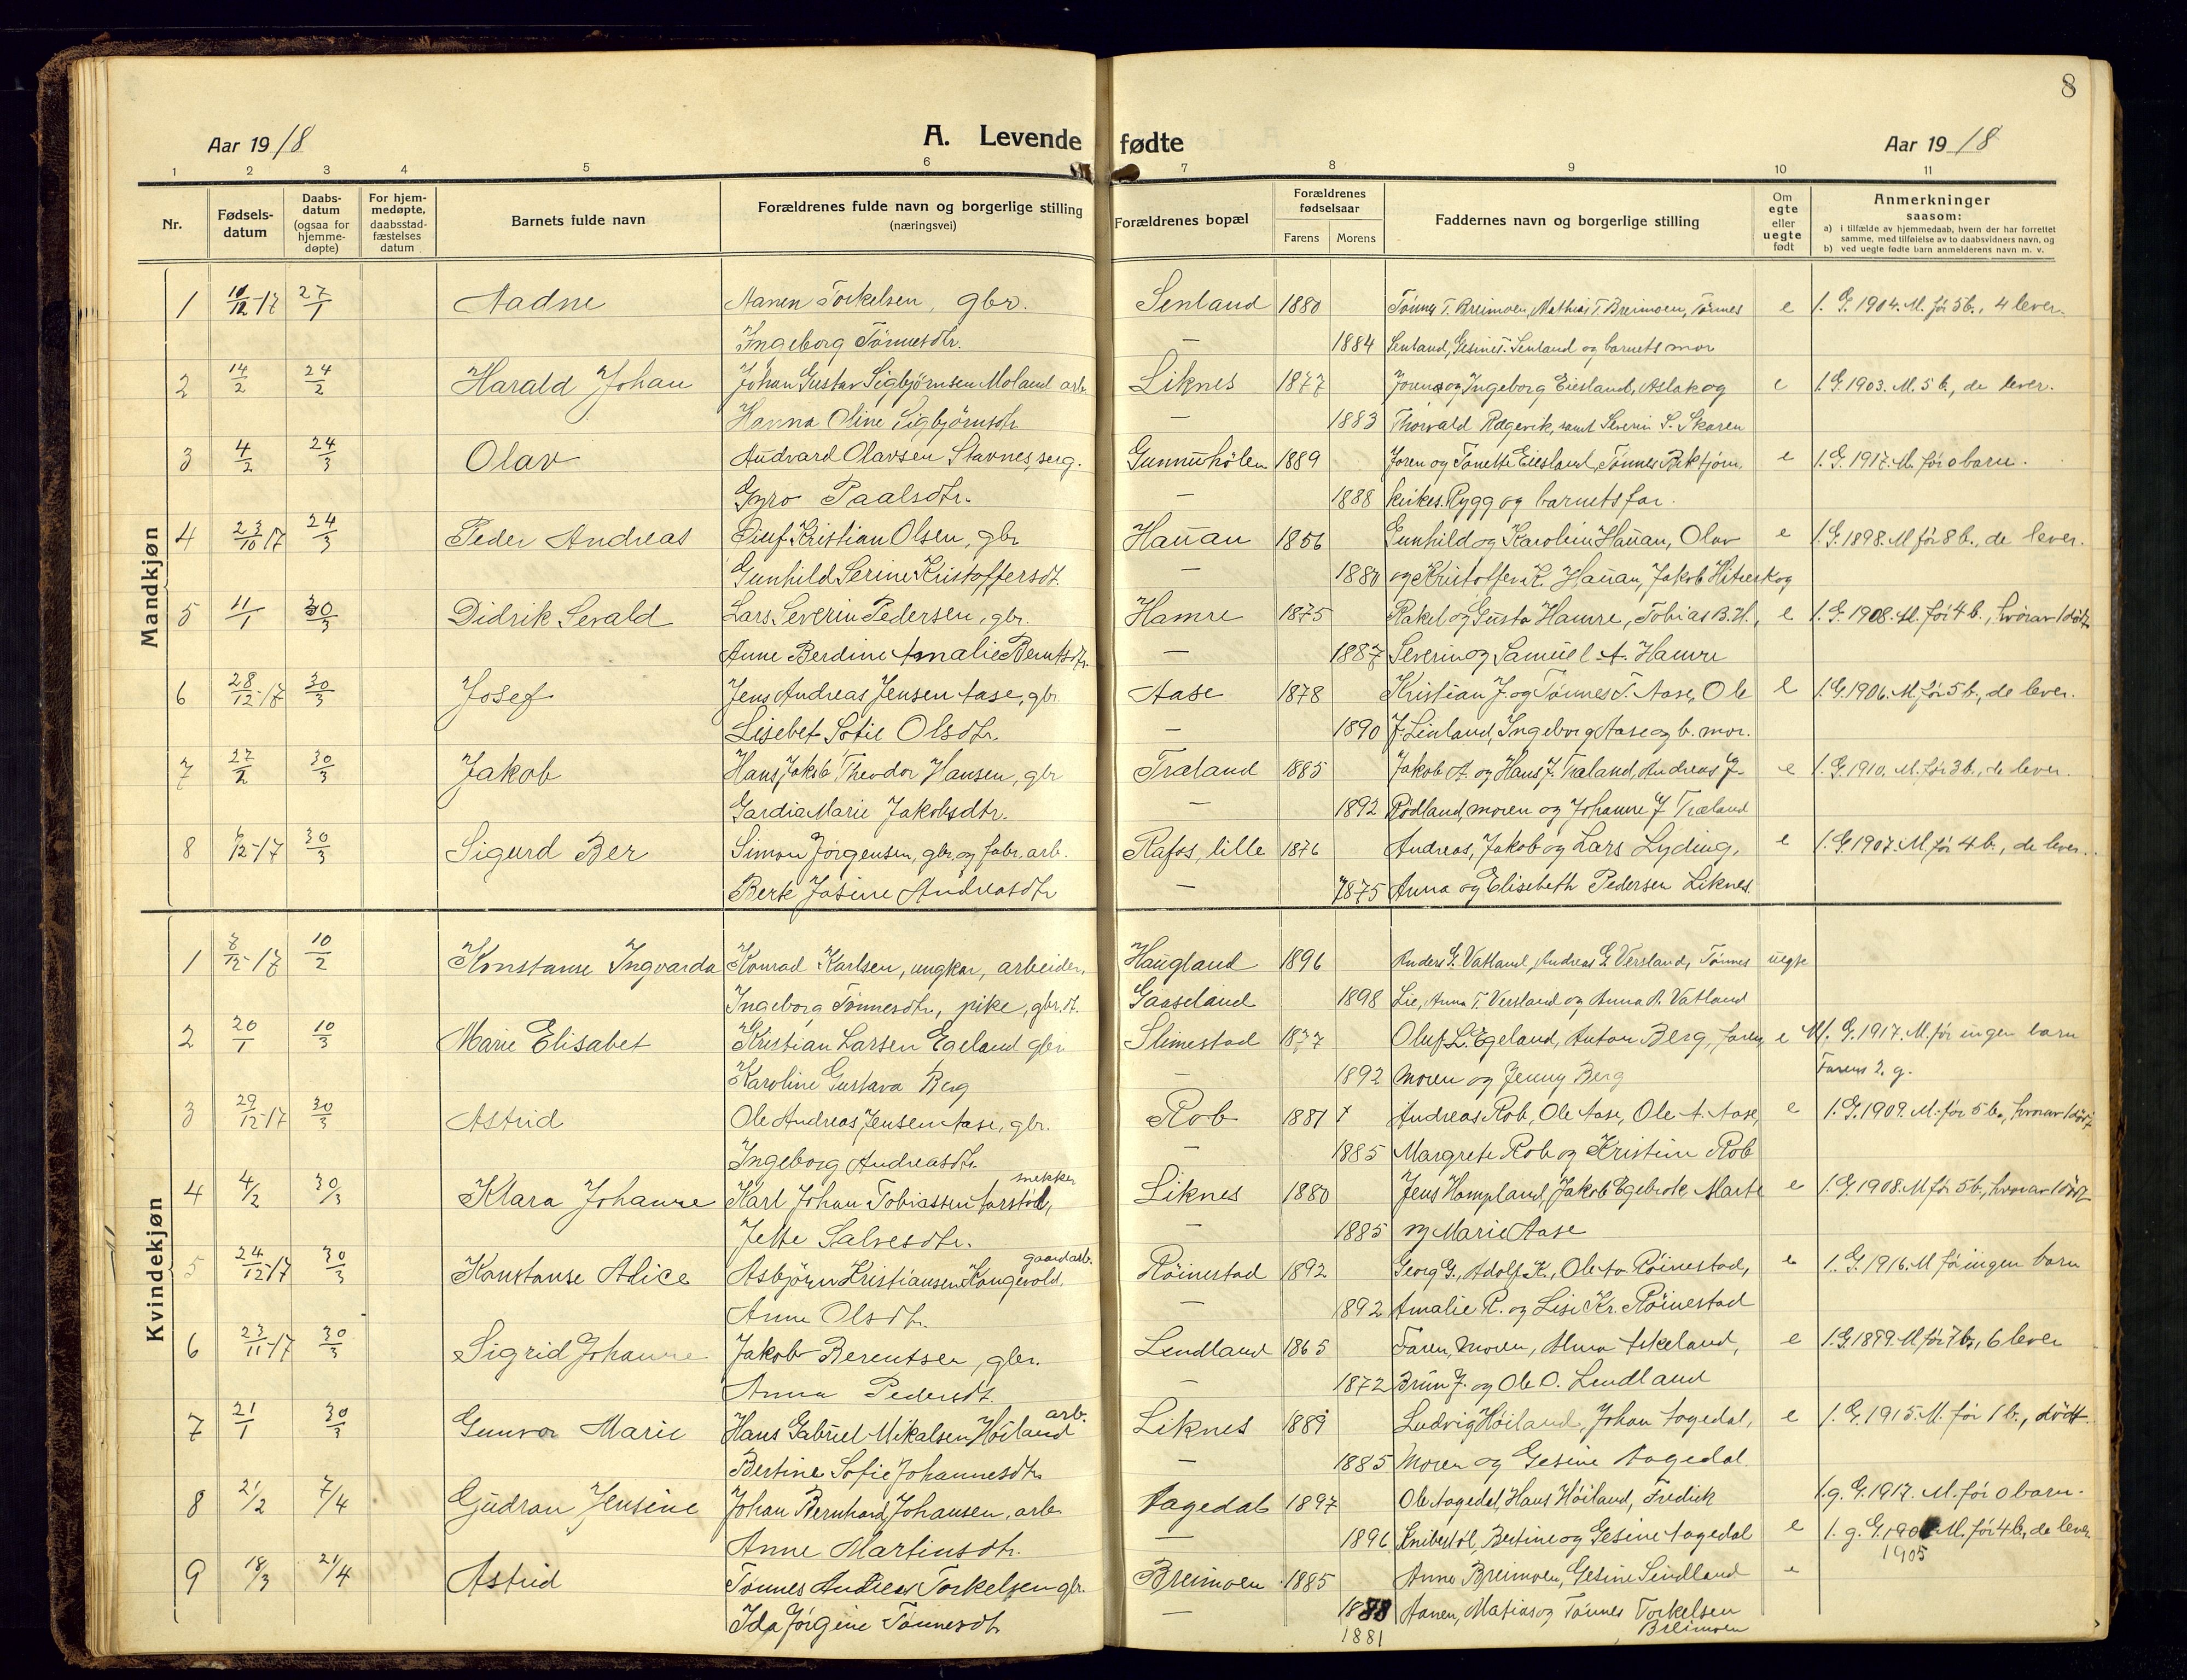 8
Aar 1918 A. Levende fødte Aar 1918
1 2 3 4 5 6 7 8 9 10 11
Nr. Fødsels-datum Daabs-datum (ogsaa for hjemme-døpte) For hjem-medøpte, daabsstad-fæstelses datum Barnets fulde navn Forældrenes fulde navn og borgerlige stilling (næringsvei) Forældrenes bopæl Forældrenes fødselsaar Farens Morens Faddernes navn og borgerlige stilling Om egte eller uegte født Anmerkninger saasom: a) i tilfælde av hjemmedaab, hvem der har forrettet samme, med tilføielse av to daabsvidners navn, og b) ved uegte fødte barn anmelderens navn m. v.
Mandkjøn
1 10/12-17 27/1 Aadne Aanen Torkelsen, gbr. Senland 1880 Tönnes T. Breimoen, Mathias T. Breimoen, Tönnes e 1. G. 1904. M. før 5 b., 4 lever.
Ingeborg Tönnesdtr. — 1884 Senland, Gesine T. Senland og barnets mor
2 14/2 24/2 Harald Johan Johan Gustav Sigbjörnsen Moland arb. Liknes 1877 Joren og Ingeborg Eiesland, Aslak og e 1. G. 1903. M. 5 b., de lever.
Hanna Oline Sigbjörnsdtr — 1883 Thorvald Rægevik, samt Severin S. Skaren
3 4/2 24/3 Olav Audvard Olavsen Stavnes, serg. Gunnuhölen 1889 Joren og Tonette Eiesland, Tönnes Birktjörn, e 1. G. 1917. M. før 0 barn.
Gyro Paalsdtr. — 1888 kirkes. Rygg og barnets far.
4 23/10 17 24/3 Peder Andreas Oluf Kristian Olsen, gbr Hauan 1856 Gunhild og Karolin Hauan, Olav e 1. G. 1898. M før 8 b., de lever.
Gunhild Serine Kristoffersdt. — 1880 og Kristoffer K. Hauan, Jakob Hitreskog
5 11/1 30/3 Didrik Sevald Lars Severin Pedersen, gbr. Hamre 1875 Rakel og Gusta Hamre, Tobias B. H., e 1. G. 1908. M. før 4 b., hvorav 1 död
Anne Berdine Amalie Berntsdtr. — 1887 Severin og Samuel A. Hamre
6 28/12-17 30/3 Josef Jens Andreas Jensen Aase, gbr Aase 1878 Kristian J. og Tönnes T. Aase, Ole e 1. G. 1906. M. før 5 b., de lever.
Lisebet Sofie Olsdtr. — 1890 J. Linland, Ingeborg Aase og b. mor.
7 27/2 30/3 Jakob Hans Jakob Theodor Hansen, gbr Træland 1885 Jakob A. og Hans J. Træland, Andreas G. e 1. G. 1910. M. før 3 b., de lever.
Gardia Marie Jakobsdtr. — 1892 Rödland, moren og Johanne J Træland
8 6/12-17 30/3 Sigurd Ber Simon Jörgensen, gbr. og fabr. arb. Rafos, lille 1876 Andreas, Jakob og Lars Lyding, e 1. G. 1907. M før 4 b., de lever.
Berte Josine Andreasdtr — 1875 Anna og Elisebeth Pedersen Liknes
Kvindekjøn
1 7/12-17 10/2 Konstanse Ingvarda Konrad Karlsen, ungkar, arbeider, Haugland 1896 Anders G. Vatland, Andreas G. Versland, Tönnes uegte
Ingeborg Tönnesdtr, pike, gbr. dt. Gaaseland 1898 Lie, Anna T. Versland og Anna A. Vatland
2 20/1 10/3 Marie Elisabet Kristian Larsen Egeland gbr Slimestad 1877 Oluf L. Egeland, Anton Berg, faren, e M 1. G. 1917. M. før ingen barn
Karoline Gustava Berg — 1892 moren og Jenny Berg Farens 2. g.
3 29/12-17 30/3 Astrid Ole Andreas Jensen Aase, gbr. Rob 1881 Andreas Rob, Ole Aase, Ole A. Aase, e 1. G. 1909. M. før 5 b., hvorav 1 död
Ingeborg Andreasdtr. — 1885 Margrete Rob og Kristine Rob
4 4/2 30/3 Klara Johanne Karl Johan Tobiassen Aarstöl, snekker Liknes 1880 Jens Hompland, Jakob Egebrok, Marte e 1. G. 1908. M før 5 b., hvorav 1 död
Jette Salvesdtr. — 1885 og Marie Aase
5 24/12-17 30/3 Konstanse Alice Asbjörn Kristiansen Kongevold, gaardarb. Röinestad 1892 Georg G., Adolf K., Ole A. Röinestad, e 1. G. 1916. M før ingen barn
Anne Olsdtr. — 1892 Amalie R. og Lise Kr. Röinestad
6 23/11-17 30/3 Sigrid Johanne Jakob Berentsen, gbr. Lendland 1865 Faren, moren, Alma Askeland, e 1. G. 1899. M før 7 b., 6 lever
Anna Pedersdt. — 1872 Brün J. og Ole O. Lendland
7 21/1 30/3 Gunvor Marie Hans Gabriel Mikalsen Höiland arb. Liknes 1889 Ludvig Höiland, Johan Aagedal, e 1. G. 1915. M. før 1 b., dødt.
Bertine Sofie Johannesdtr — 1885 Moren og Gesine Aagedal
8 21/2 7/4 Gudran Jensine Johan Bernhard Johansen, arb. Aagedal 1897 Ole Aagedal, Hans Höiland, Fredrik 1. g. G. 1917. M. før 0 barn.
Anne Martinsdtr. — 1896 Knibestöl, Bertine og Gesine Aagedal e 1. g. G. 1905 M. før 4 b., de lever
9 18/3 21/4 Astrid Tönnes Andreas Torkelsen gbr. Breimoen 1885 Anne Breimoen, Gesine Sindland e
Ida Jörgine Tönnesdtr — 1888 Aanen, Matias og Tönnes Torkelsen
1881 Breimoen